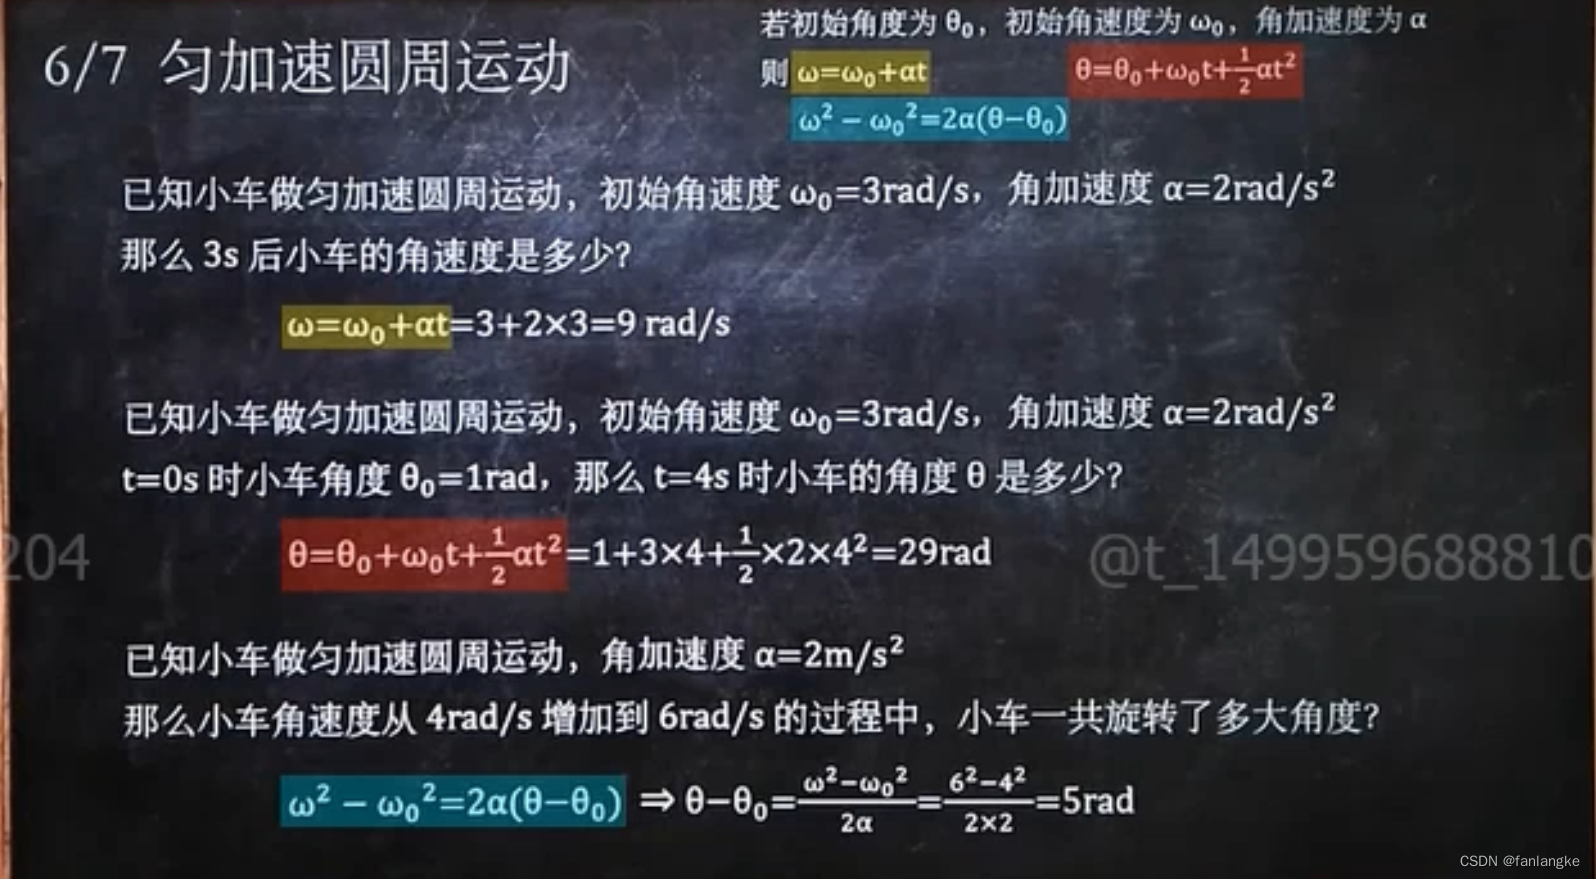 6/7 匀加速圆周运动
若初始角度为 θ₀，初始角速度为 ω₀，角加速度为 α
则 ω=ω₀+αt θ=θ₀+ω₀t+½αt²
ω² − ω₀²=2α(θ−θ₀)
已知小车做匀加速圆周运动，初始角速度 ω₀=3rad/s，角加速度 α=2rad/s²
那么 3s 后小车的角速度是多少？
ω=ω₀+αt=3+2×3=9 rad/s
已知小车做匀加速圆周运动，初始角速度 ω₀=3rad/s，角加速度 α=2rad/s²
t=0s 时小车角度 θ₀=1rad，那么 t=4s 时小车的角度 θ 是多少？
θ=θ₀+ω₀t+½αt²=1+3×4+½×2×4²=29rad
204
@t_149959688810
已知小车做匀加速圆周运动，角加速度 α=2m/s²
那么小车角速度从 4rad/s 增加到 6rad/s 的过程中，小车一共旋转了多大角度？
ω² − ω₀²=2α(θ−θ₀) ⇒ θ−θ₀=(ω²−ω₀²)/2α=(6²−4²)/2×2=5rad
CSDN @fanlangke